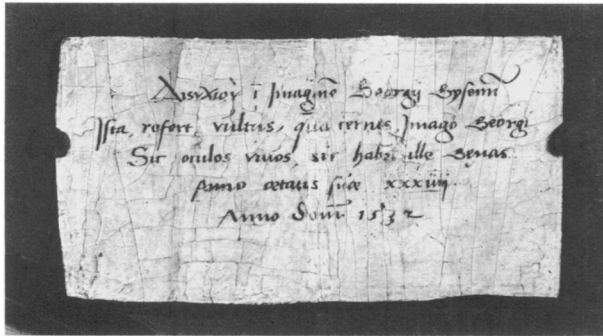 Διστιχον ī Imaginē Georgij Gysenij
Ista refert vultus, quā cernes, Imago Georgi
Sic oculos viuos, sic habet ille genas
Anno ætatis suæ xxxiiij
Anno dom̄ 1532